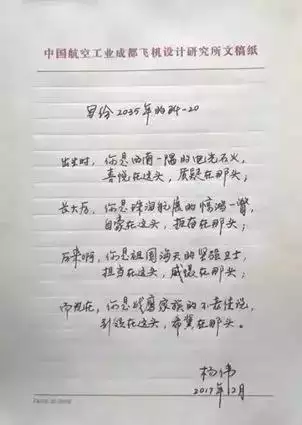 中国航空工业成都飞机设计研究所文稿纸
写给2035年的歼-20
出生时，你是西南一隅的电光石火，
喜悦在这头，质疑在那头；
长大后，你是珠海航展的惊鸿一瞥，
自豪在这头，振奋在那头；
后来啊，你是祖国海天的坚强卫士，
担当在这头，威慑在那头；
而现在，你是战鹰家族的不老传说，
引领在这头，希冀在那头。
杨伟
2017年12月